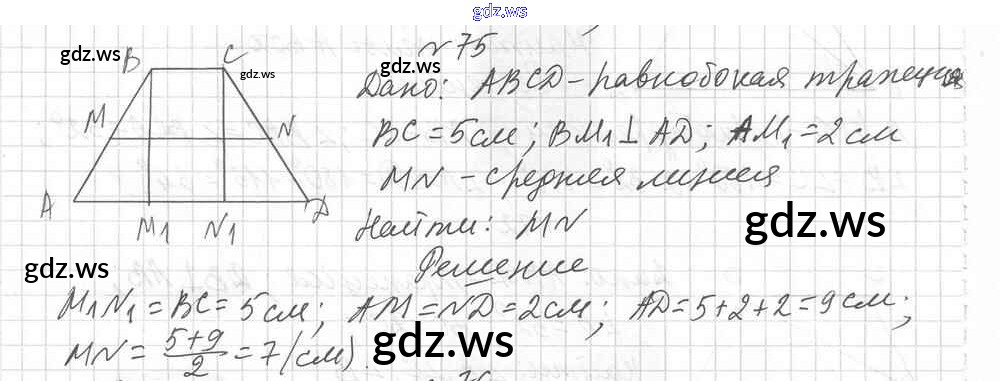 gdz.ws
№ 75
gdz.ws
gdz.ws
gdz.ws
B C
M N
A M₁ N₁ D
Дано: ABCD - равнобокая трапеция
BC = 5 см; BM₁ ⊥ AD; AM₁ = 2 см
MN - средняя линия
Найти: MN
gdz.ws
gdz.ws
Решение
M₁N₁ = BC = 5 см; AM = ND = 2 см; AD = 5 + 2 + 2 = 9 см;
MN = (5+9)/2 = 7 (см).
gdz.ws